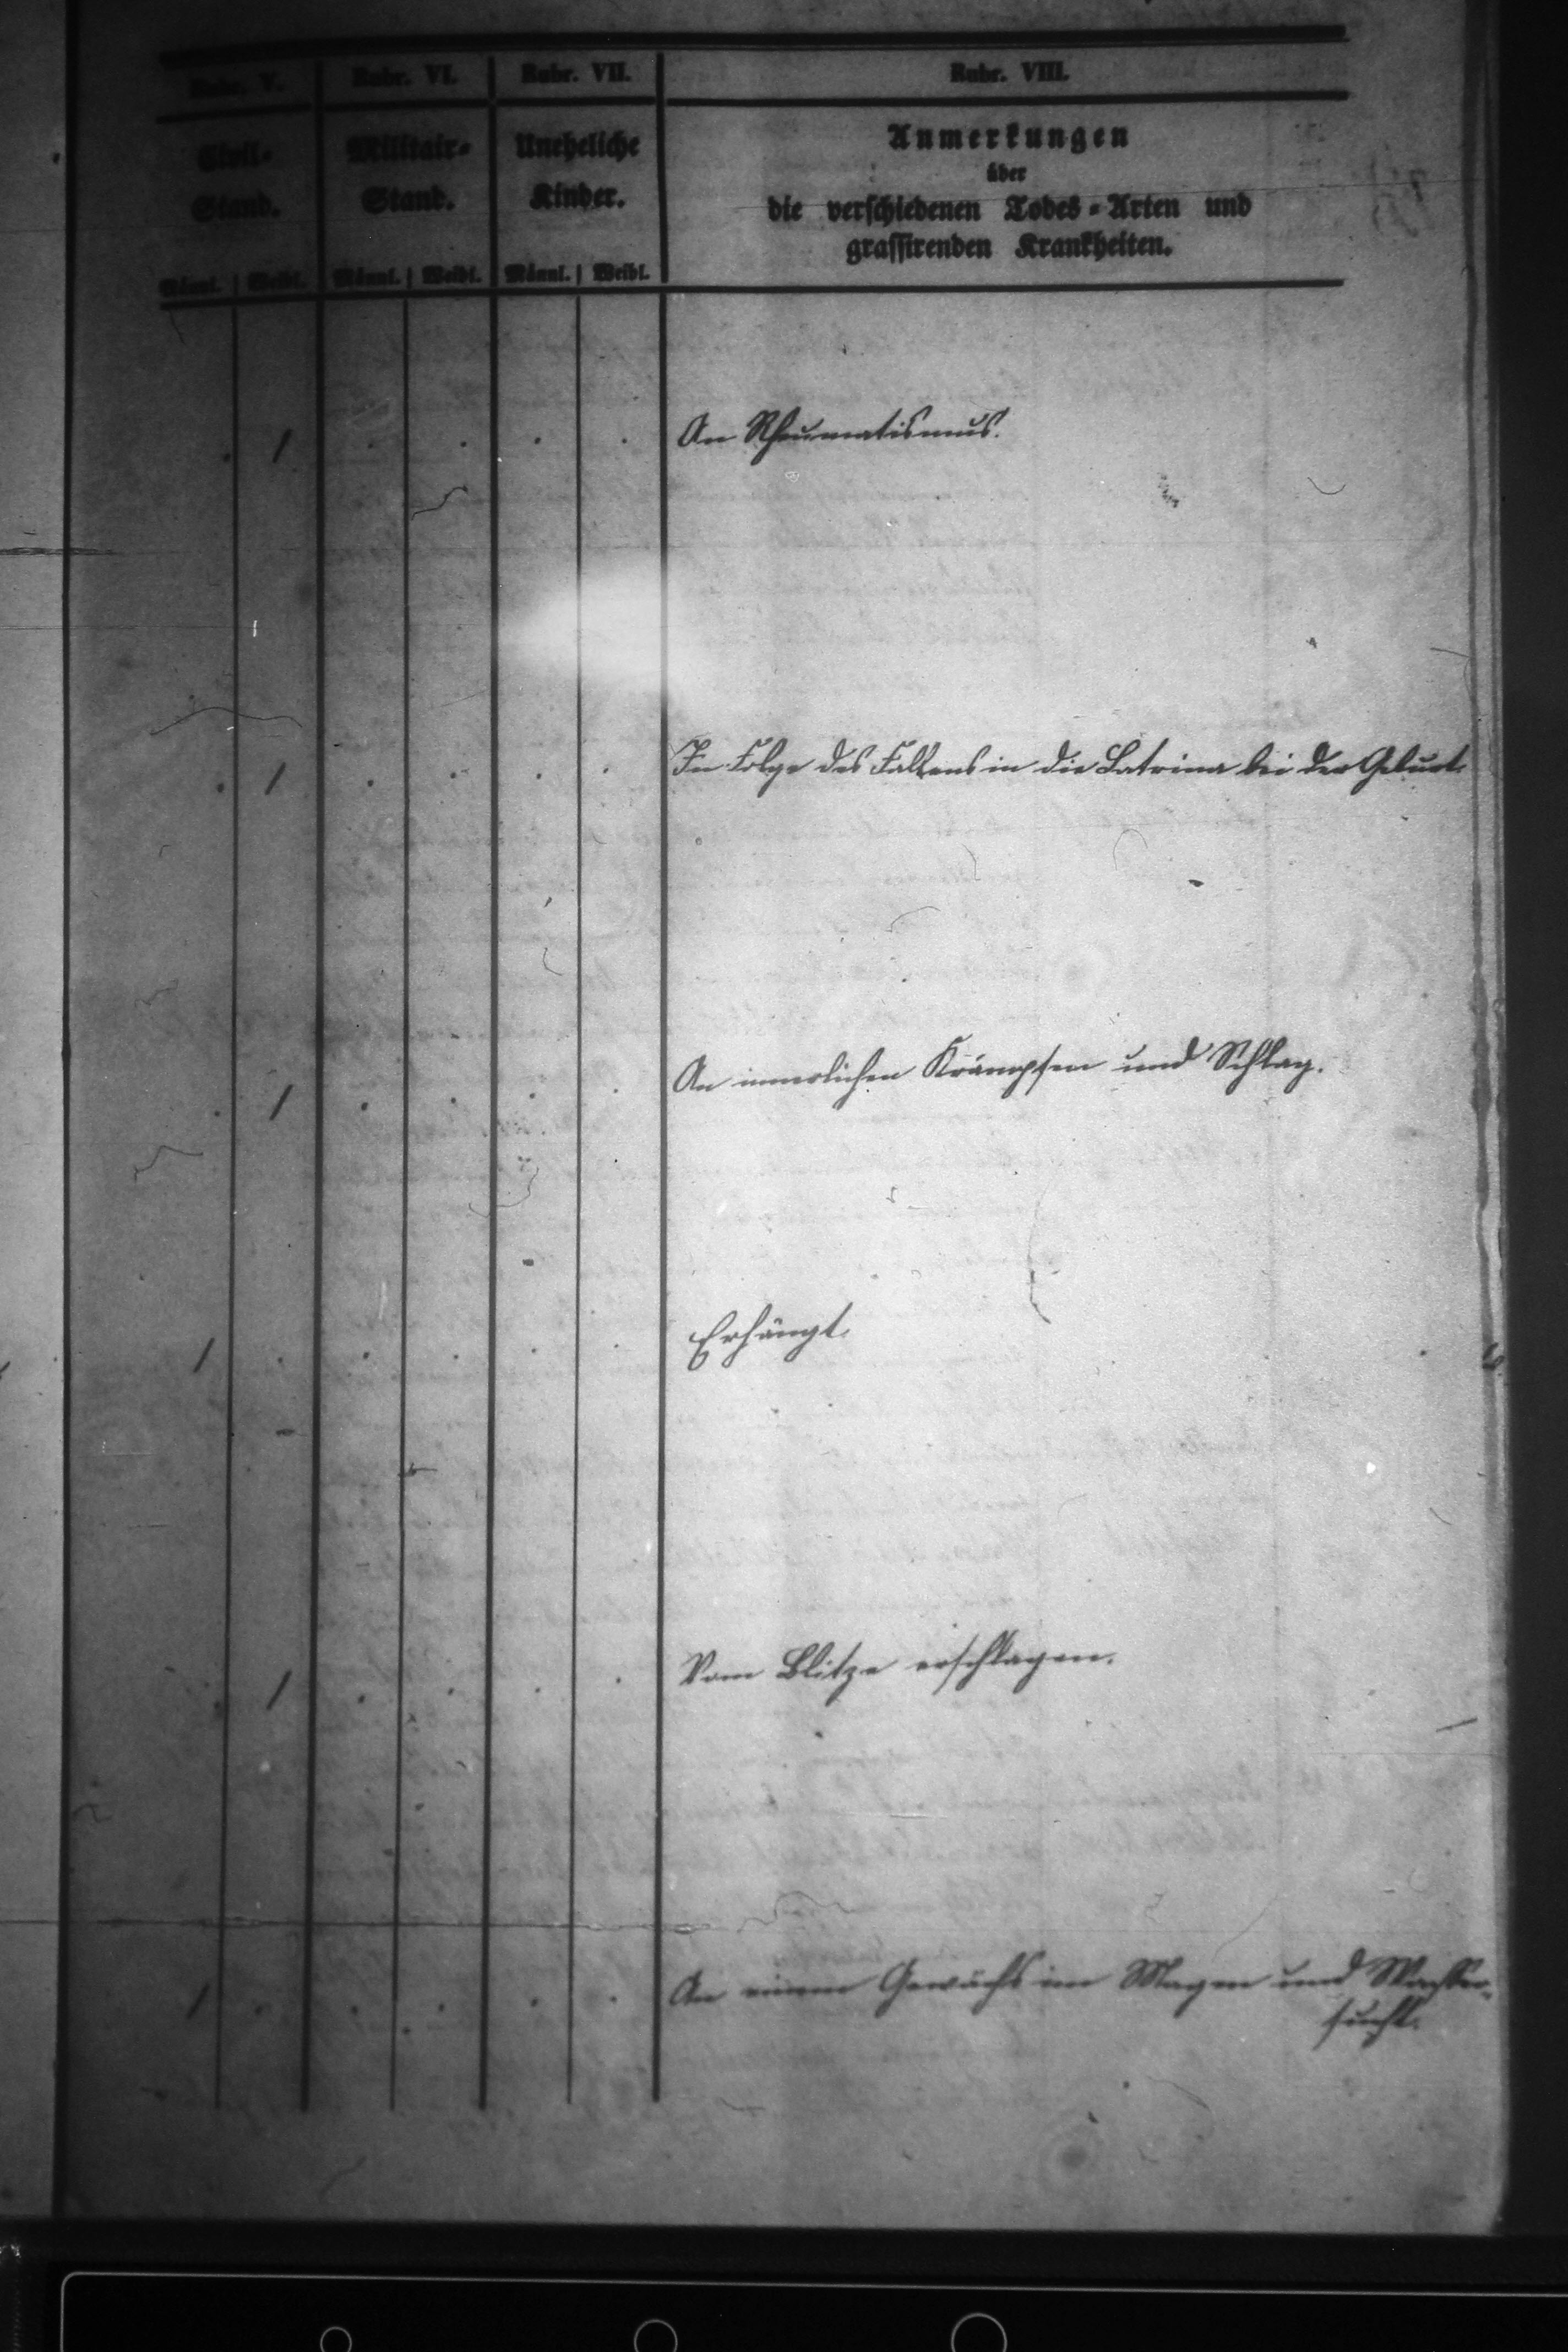 Rubr. V. Rubr. VI. Rubr. VII. Rubr. VIII.
Civil- Militair- Uneheliche Anmerkungen
Stand. Stand. Kinder. über
die verschiedenen Todes-Arten und
grassirenden Krankheiten.
Männl. Weibl. Männl. Weibl. Männl. Weibl.
. 1 . . . . An Rheumatismus.
. 1 . . . . In Folge des Fallens in die Latrina bei der Geburt.
. 1 . . . . An innerlichen Krämpfen und Schlag.
1 . . . . . Erhängt.
. 1 . . . . Vom Blitze erschlagen.
1 . . . . . An einem Gewächs im Magen und Wasser-
sucht.